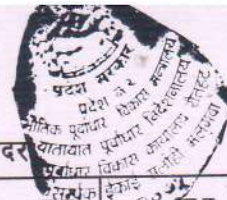 प्रदेश सरकार
प्रदेश नं २
भौतिक पूर्वाधार विकास मन्त्रालय
यातायात पूर्वाधार निर्देशनालय
पूर्वाधार विकास कार्यालय रौतहट
सम्पर्क ईकाई
दर